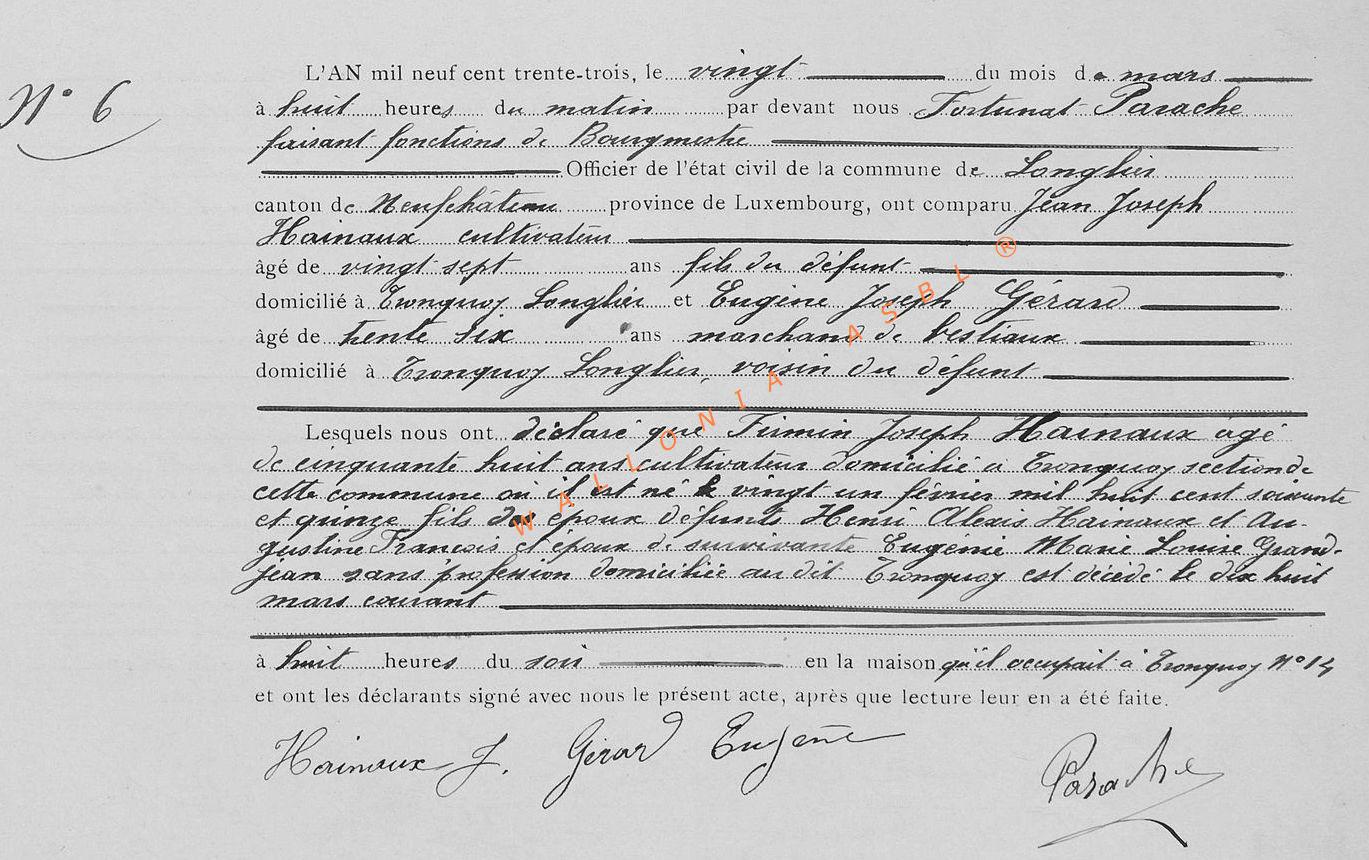 N° 6
L'AN mil neuf cent trente-trois, le vingt du mois de mars
à huit heures du matin par devant nous Fortunat Parache
faisant fonctions de Bourgmestre
Officier de l'état civil de la commune de Longlier
canton de Neufchâteau province de Luxembourg, ont comparu Jean Joseph
Hainaux cultivateur
âgé de vingt sept ans fils du défunt
domicilié à Tronquoy Longlier et Eugène Joseph Gérard
âgé de trente six ans marchand de bestiaux
domicilié à Tronquoy Longlier, voisin du défunt
Lesquels nous ont déclaré que Firmin Joseph Hainaux âgé
de cinquante huit ans cultivateur domicilié à Tronquoy section de
cette commune où il est né le vingt un février mil huit cent soixante
et quinze fils des époux défunts Henri Alexis Hainaux et Au-
gustine François et époux de survivante Eugénie Marie Louise Grand-
jean sans profession domiciliée au dit Tronquoy est décédé le dix huit
mars courant
à huit heures du soir en la maison qu'il occupait à Tronquoy N° 14
et ont les déclarants signé avec nous le présent acte, après que lecture leur en a été faite.
Hainaux J. Gérard Eugène
Parache
WALLONIA ASBL ®